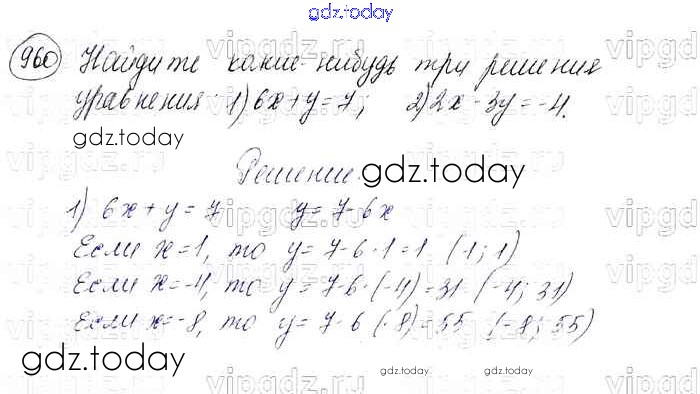 gdz.today
960 Найдите какие-нибудь три решения
уравнения: 1) 6x+y=7; 2) 2x-3y=-4.
gdz.today
Решение. gdz.today
1) 6x+y=7 y=7-6x
Если x=1, то y=7-6·1=1 (1; 1)
Если x=-4, то y=7-6·(-4)=31 (-4; 31)
Если x=-8, то y=7-6·(-8)=55 (-8; 55)
gdz.today
gdz.today gdz.today